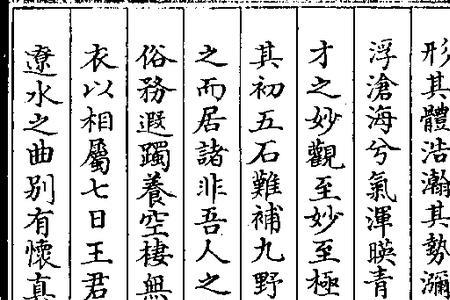 形其體浩瀚其勢瀰
浮滄海兮氣渾暎青
才之妙觀至妙至極
其初五石難補九野
之而居諸非吾人之
俗務遐躅養空棲無
衣以相屬七日王君
遼水之曲別有懷真